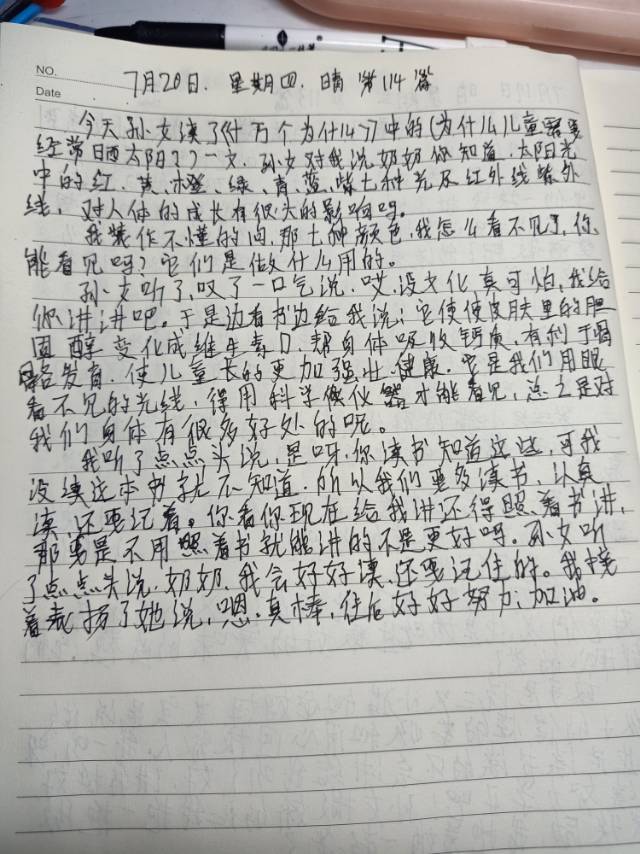 NO.
Date
7月20日. 星期四. 晴 第114篇
今天孙女读了《十万个为什么》中的(为什么儿童需要
经常日晒太阳?)一文. 孙女对我说奶奶你知道. 太阳光
中的红、黄、橙、绿、青、蓝、紫七种光及红外线紫外
线, 对人体的成长有很大的影响吗。
我装作不懂的问, 那七种颜色, 我怎么看不见了, 你
能看见吗? 它们是做什么用的。
孙女听了, 叹了一口气说, 哎, 没文化, 真可怕, 我给
你讲讲吧。于是边看书边给我说: 它使使皮肤里的胆
固醇变化成维生素D, 帮身体吸收钙质, 有利于骨
骼发育. 使儿童长的更加强壮. 健康. 它是我们用眼
看不见的光线, 得用科学仪器才能看见, 总之是对
我们身体有很多好处的呢。
我听了点点头说, 是呀, 你读书知道这些, 可我
没读这本书就不知道. 所以我们要多读书、认真
读, 还要记着。你看你现在给我讲还得照着书讲,
那要是不用照着书就能讲的不是更好吗。孙女听
了点点头说, 奶奶、我会好好读、还要记住的。我接
着表扬了她说, 嗯. 真棒, 往后好好努力. 加油。